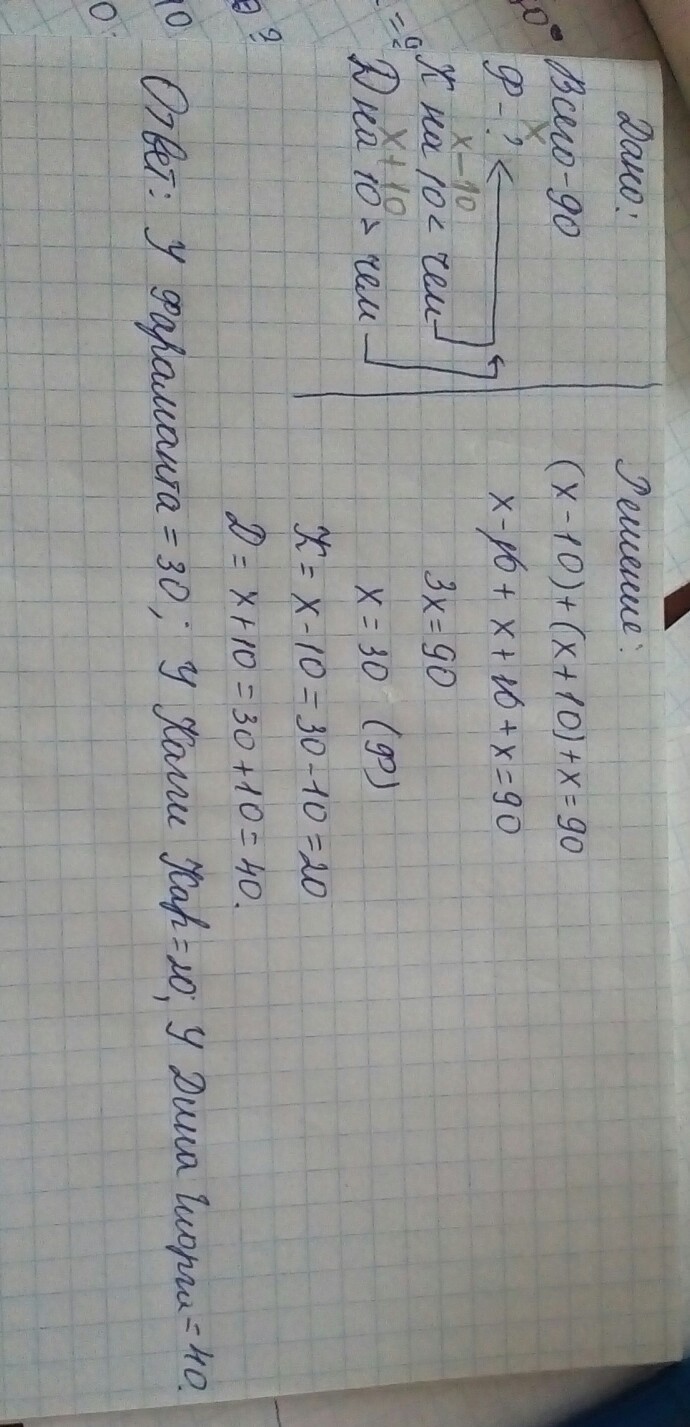 Дано:
Всего - 90
x
Ф - ?
x - 10
К на 10 < чем
x + 10
D на 10 > чем
Решение:
(x - 10) + (x + 10) + x = 90
x - 10 + x + 10 + x = 90
3x = 90
x = 30 (Ф)
К = x - 10 = 30 - 10 = 20
D = x + 10 = 30 + 10 = 40.
Ответ: У Фараманта = 30; У Кагги Кар = 20; У Дина Гиорги = 40.